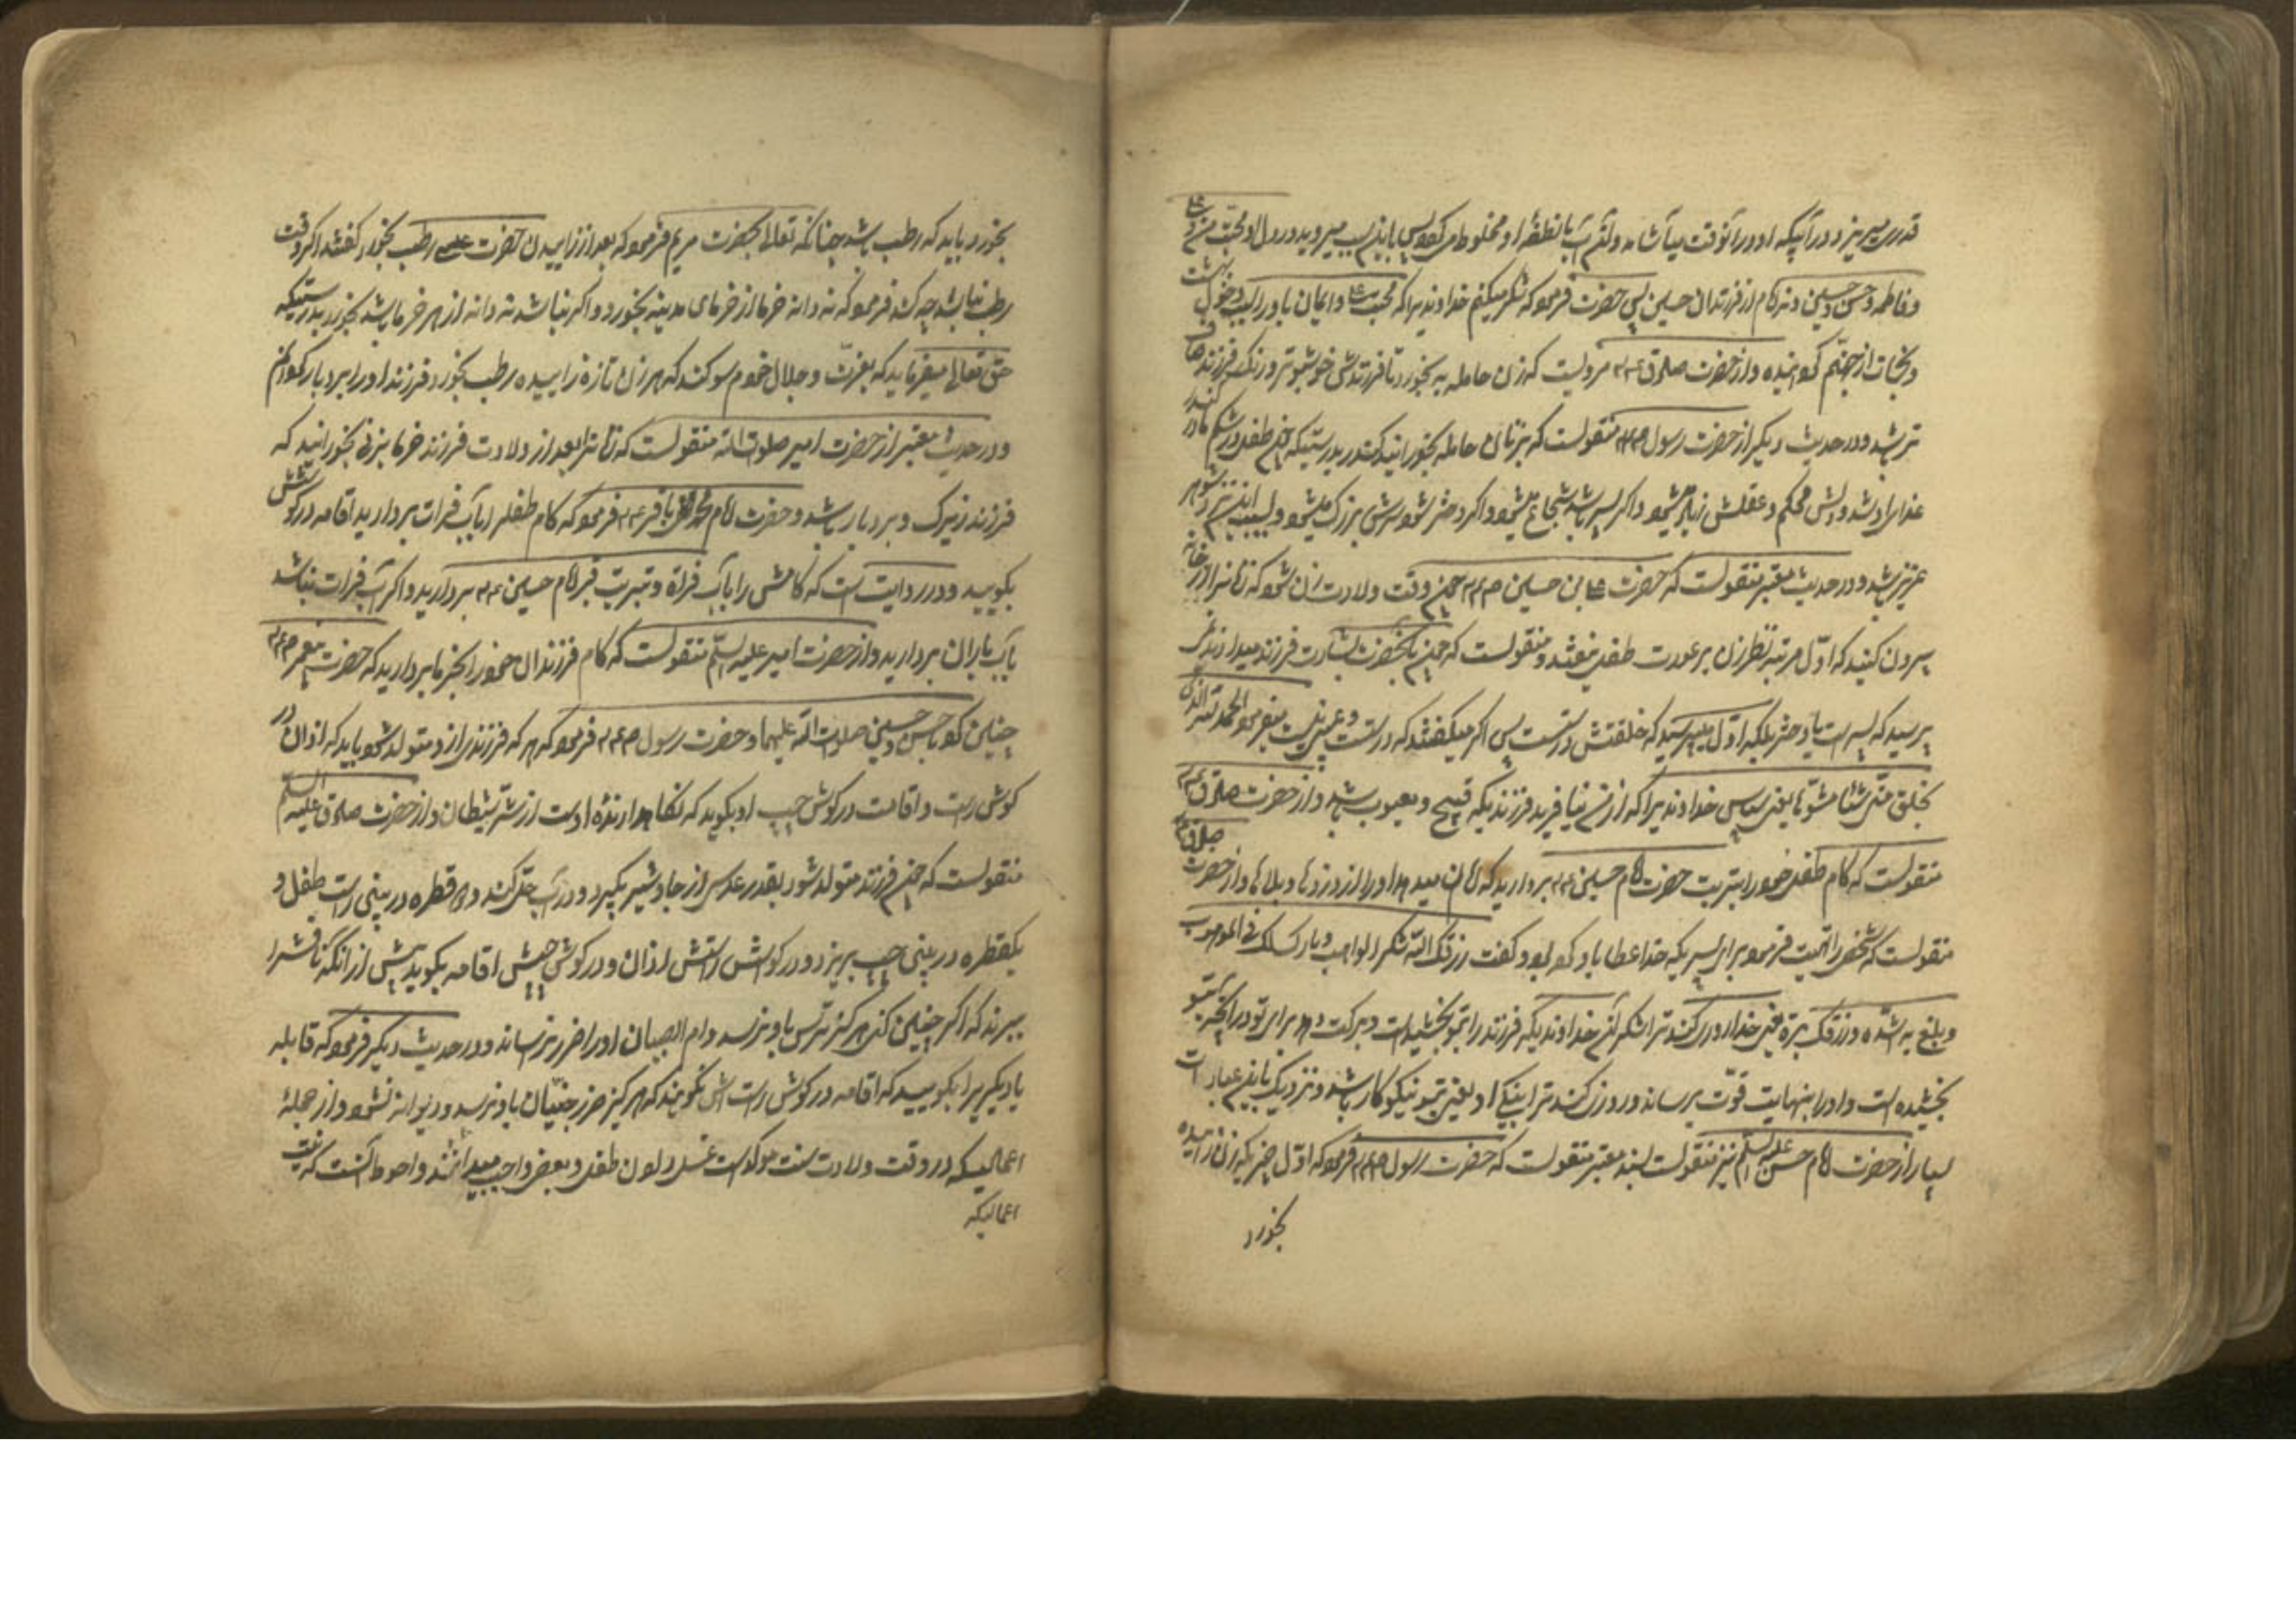 قدری میریزد در آبیکه او در آنوقت میآشامد و آن آب با نطفهٔ او مخلوط میشود پس باین سبب میروید در دل او محبت من و علی
و فاطمه و حسن و حسین و نه امام از فرزندان حسین پس حضرت فرمود که شکر میکنم خداوندیرا که محبت علی و ایمان باو را سبب دخول بهشت
و نجات از جهنم گردانیده و از حضرت صادق ع م مرویست که زن حامله به بخورد تا فرزندش خوشبوتر و رنگ فرزند صاف
تر باشد و در حدیث دیگر از حضرت رسول ص منقولست که بزنان حامله بخورانید کندر بدرستیکه چون طفل در شکم مادر کندر
غذا دلش محکم و عقلش زیاد میشود و اگر پسر باشد شجاع میشود و اگر دختر شود سرینش بزرگ میشود و بسبب این نزد شوهر
عزیز باشد و در حدیث معتبر منقولست که حضرت علی بن حسین ص چون وقت ولادت زن میشود که زنانرا از خانه
بیرون کنید که اول مرتبه نظر زن بر عورت طفل نیفتد و منقولست که چون بآنحضرت بشارت فرزند میدادند نمی
پرسید که پسر است یا دختر بلکه اول میپرسید که خلقتش درستست پس اگر میگفتند که درست میفرمود الحمد لله الذی
یخلق منی شیئا مشوها یعنی سپاس خداوندیرا که از من نیافرید فرزندیکه قبیح و معیوب باشد و از حضرت صادق ع م
منقولست که کام طفل خود را بتربت حضرت امام حسین ع م بردارید که امان میدهد او را از دردها و بلاها و از حضرت صادق ع م
منقولست که شخصی را تهنیت فرمود برای پسریکه خدا عطا باو کرده بود و گفت رزقک الله شکر الواهب و بارک لک فی الموهوب
و بلغ به اشده و رزقک بره یعنی خدا روزی کند ترا شکر آن خداوندیکه فرزند را بتو بخشیده است و برکت دهد برای تو در آنچه بتو
بخشیده است و او را بنهایت قوت برساند و روزی کند ترا نیکی او یعنی بتو نیکوکار باشد و نزدیک باین عبارات
بسیار از حضرت امام حسن علیه السلم نیز منقولست بسند معتبر منقولست که حضرت رسول ص فرمود که اول چیزیکه زن زاییده
بخورد
بخورد باید که رطب باشد چنانکه تعالی بحضرت مریم فرمود که بعد از زاییدن حضرت عیسی رطب بخورد گفتند اگر وقت
رطب نباشد چه کند فرمود که نه دانه خرما از خرمای مدینه بخورد و اگر نباشد نه دانه از هر خرما باشد بخورد بدرستیکه
حق تعالی میفرماید که بعزت و جلال خودم سوگند که هر زن تازه زاییده رطب بخورد فرزند او را بردبار گردانم
و در حدیث معتبر از حضرت امیر صلوات الله منقولست که زنانرا بعد از ولادت فرزند خرما برنی بخورانید که
فرزند زیرک و بردبار باشد و حضرت امام محمد باقر ع م فرمود که کام طفل را بآب فرات بردارید و اقامه در گوشش
بگویید و در روایت است که کامش را بآب فراة و تبربت قبر امام حسین ع م بردارید و اگر آب فرات نباشد
بآب باران بردارید و از حضرت امیر علیه السلم منقولست که کام فرزندان خود را بخرما بردارید که حضرت پیغمبر ص
چنین کرد با حسن و حسین صلوات الله علیهما و حضرت رسول ص فرمود که هر که فرزندی از و متولد شود باید که اذان در
گوش راست و اقامت در گوش چپ او بگوید که نگاه دارندهٔ اوست از شر شیطان و از حضرت صادق علیه السلم
منقولست که چون فرزند متولد شود بقدر عدسی از جاوشیر بگیرد و در آب حل کند و دو قطره در بینی راست طفل و
یکقطره در بینی چپ بریزد و در گوش راستش اذان و در گوش چپش اقامه بگوید پیش از آنکه نافش را
ببرند که اگر چنین کنی هرگز ترس باو نرسد و ام الصبیان او را ضرر نرساند و در حدیث دیگر فرمود که قابله
یا دیگریرا بگویید که اقامه در گوش راستش بگویند که هرگز ضرر جنیان باو نرسد و دیوانه نشود و از جملهٔ
اعمالیکه در وقت ولادت سنت موکد است غسل دادن طفل و بعضی واجب میدانند و احوط آنست که نیت
اعمالیکه